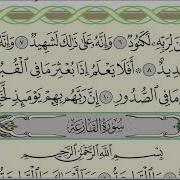 لِرَبِّهِۦ لَكَنُودٌ ٦ وَإِنَّهُۥ عَلَىٰ ذَٰلِكَ لَشَهِيدٌ ٧ وَإِنَّهُۥ
٨ أَفَلَا يَعْلَمُ إِذَا بُعْثِرَ مَا فِى
مَا فِى ٱلصُّدُورِ ١٠ إِنَّ رَبَّهُم بِهِمْ يَوْمَئِذٍ
سُورَةُ القَارِعَةِ
بِسْمِ ٱللَّهِ ٱلرَّحْمَٰنِ ٱلرَّحِيمِ